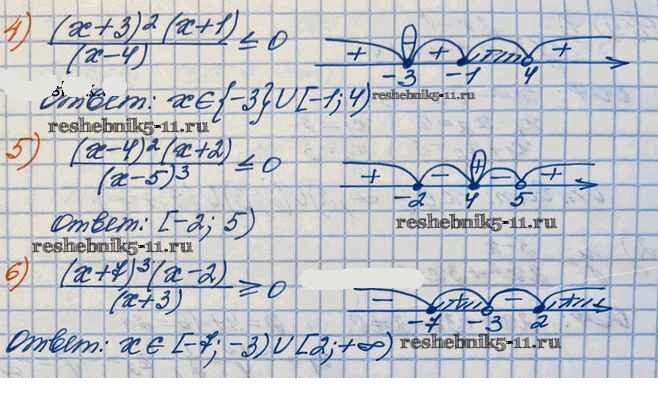 4) (x+3)²(x+1) / (x-4) ≤ 0
+ + - + -3 -1 4
Ответ: x∈{-3}∪[-1;4)
reshebnik5-11.ru
reshebnik5-11.ru
5) (x-4)²(x+2) / (x-5)³ ≤ 0
+ - + - + -2 4 5
reshebnik5-11.ru
Ответ: [-2; 5)
reshebnik5-11.ru
6) (x+7)³(x-2) / (x+3) ≥ 0
- + - + -7 -3 2
reshebnik5-11.ru
Ответ: x∈[-7;-3)∪[2;+∞)